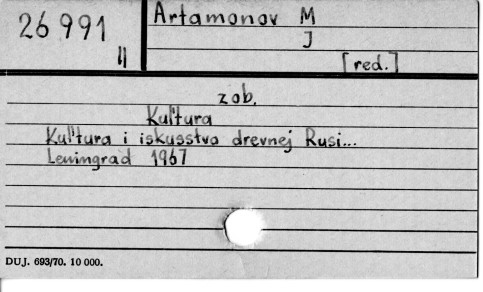 26 991
II
Artamonov M
J
[red.]
zob.
Kul'tura
Kul'tura i iskusstvo drevnej Rusi...
Leningrad 1967
DUJ. 693/70. 10 000.